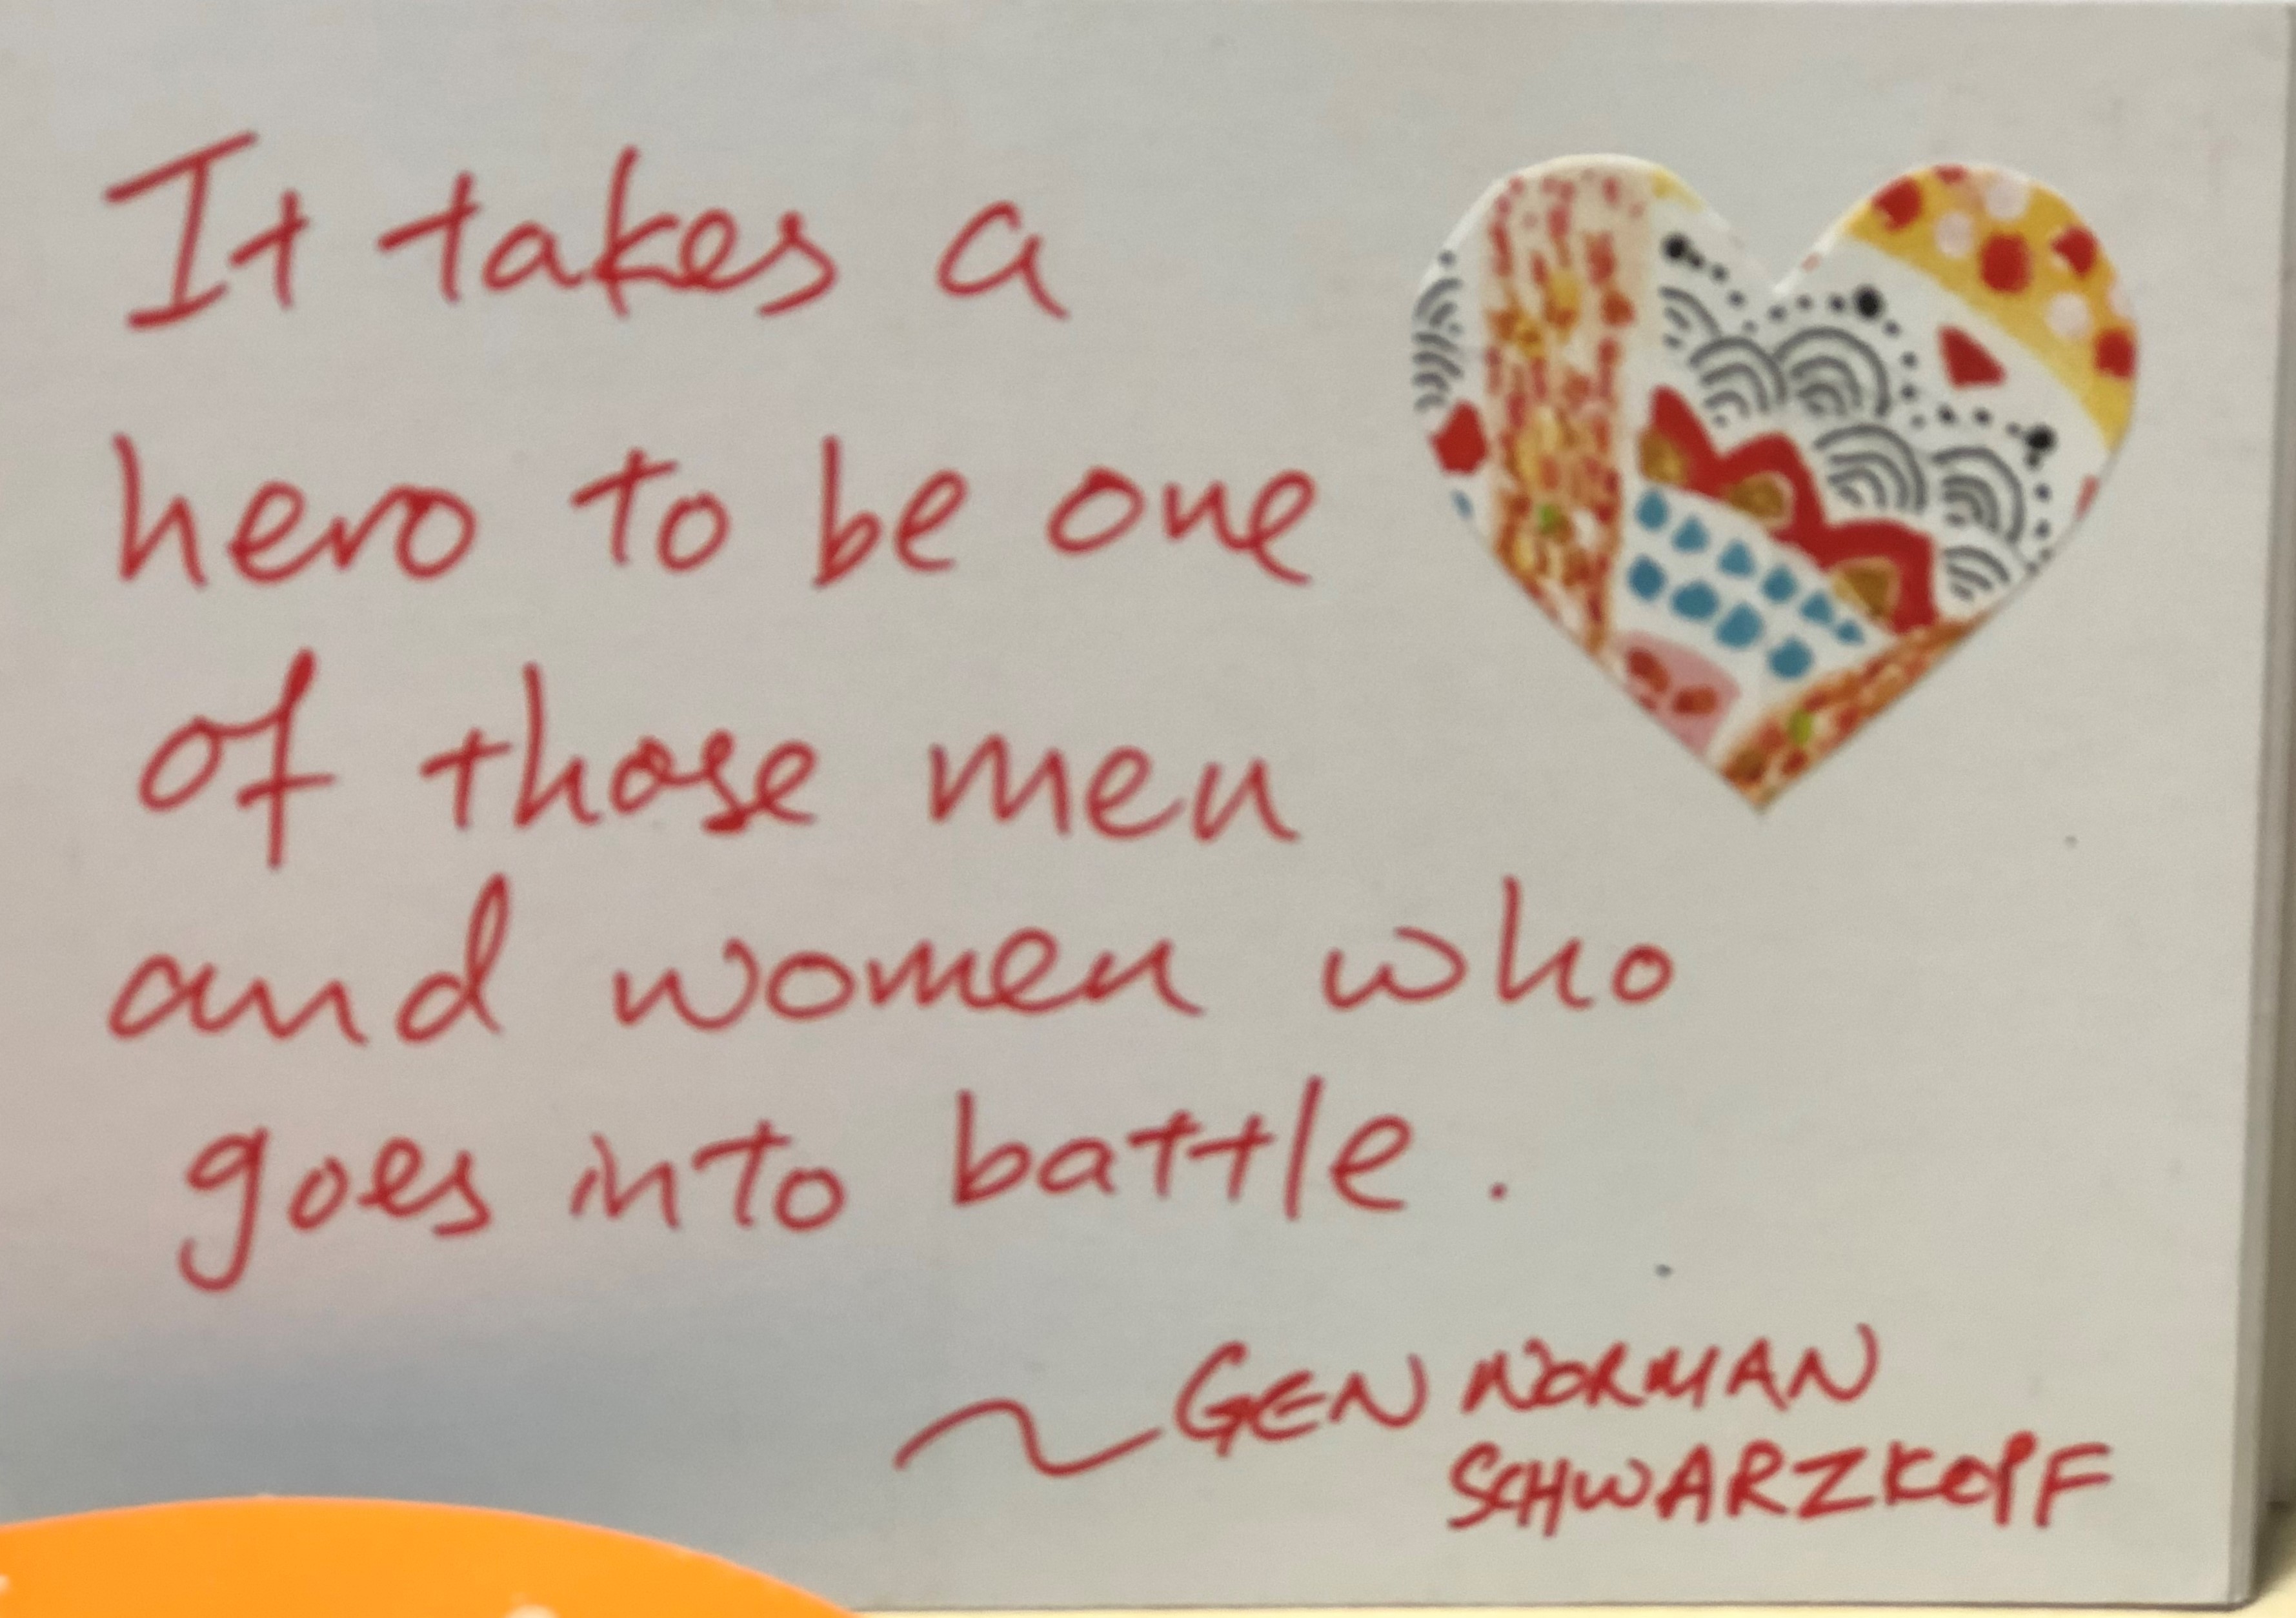 It takes a
hero to be one
of those men
and women who
goes into battle.
~GEN NORMAN
SCHWARZKOPF